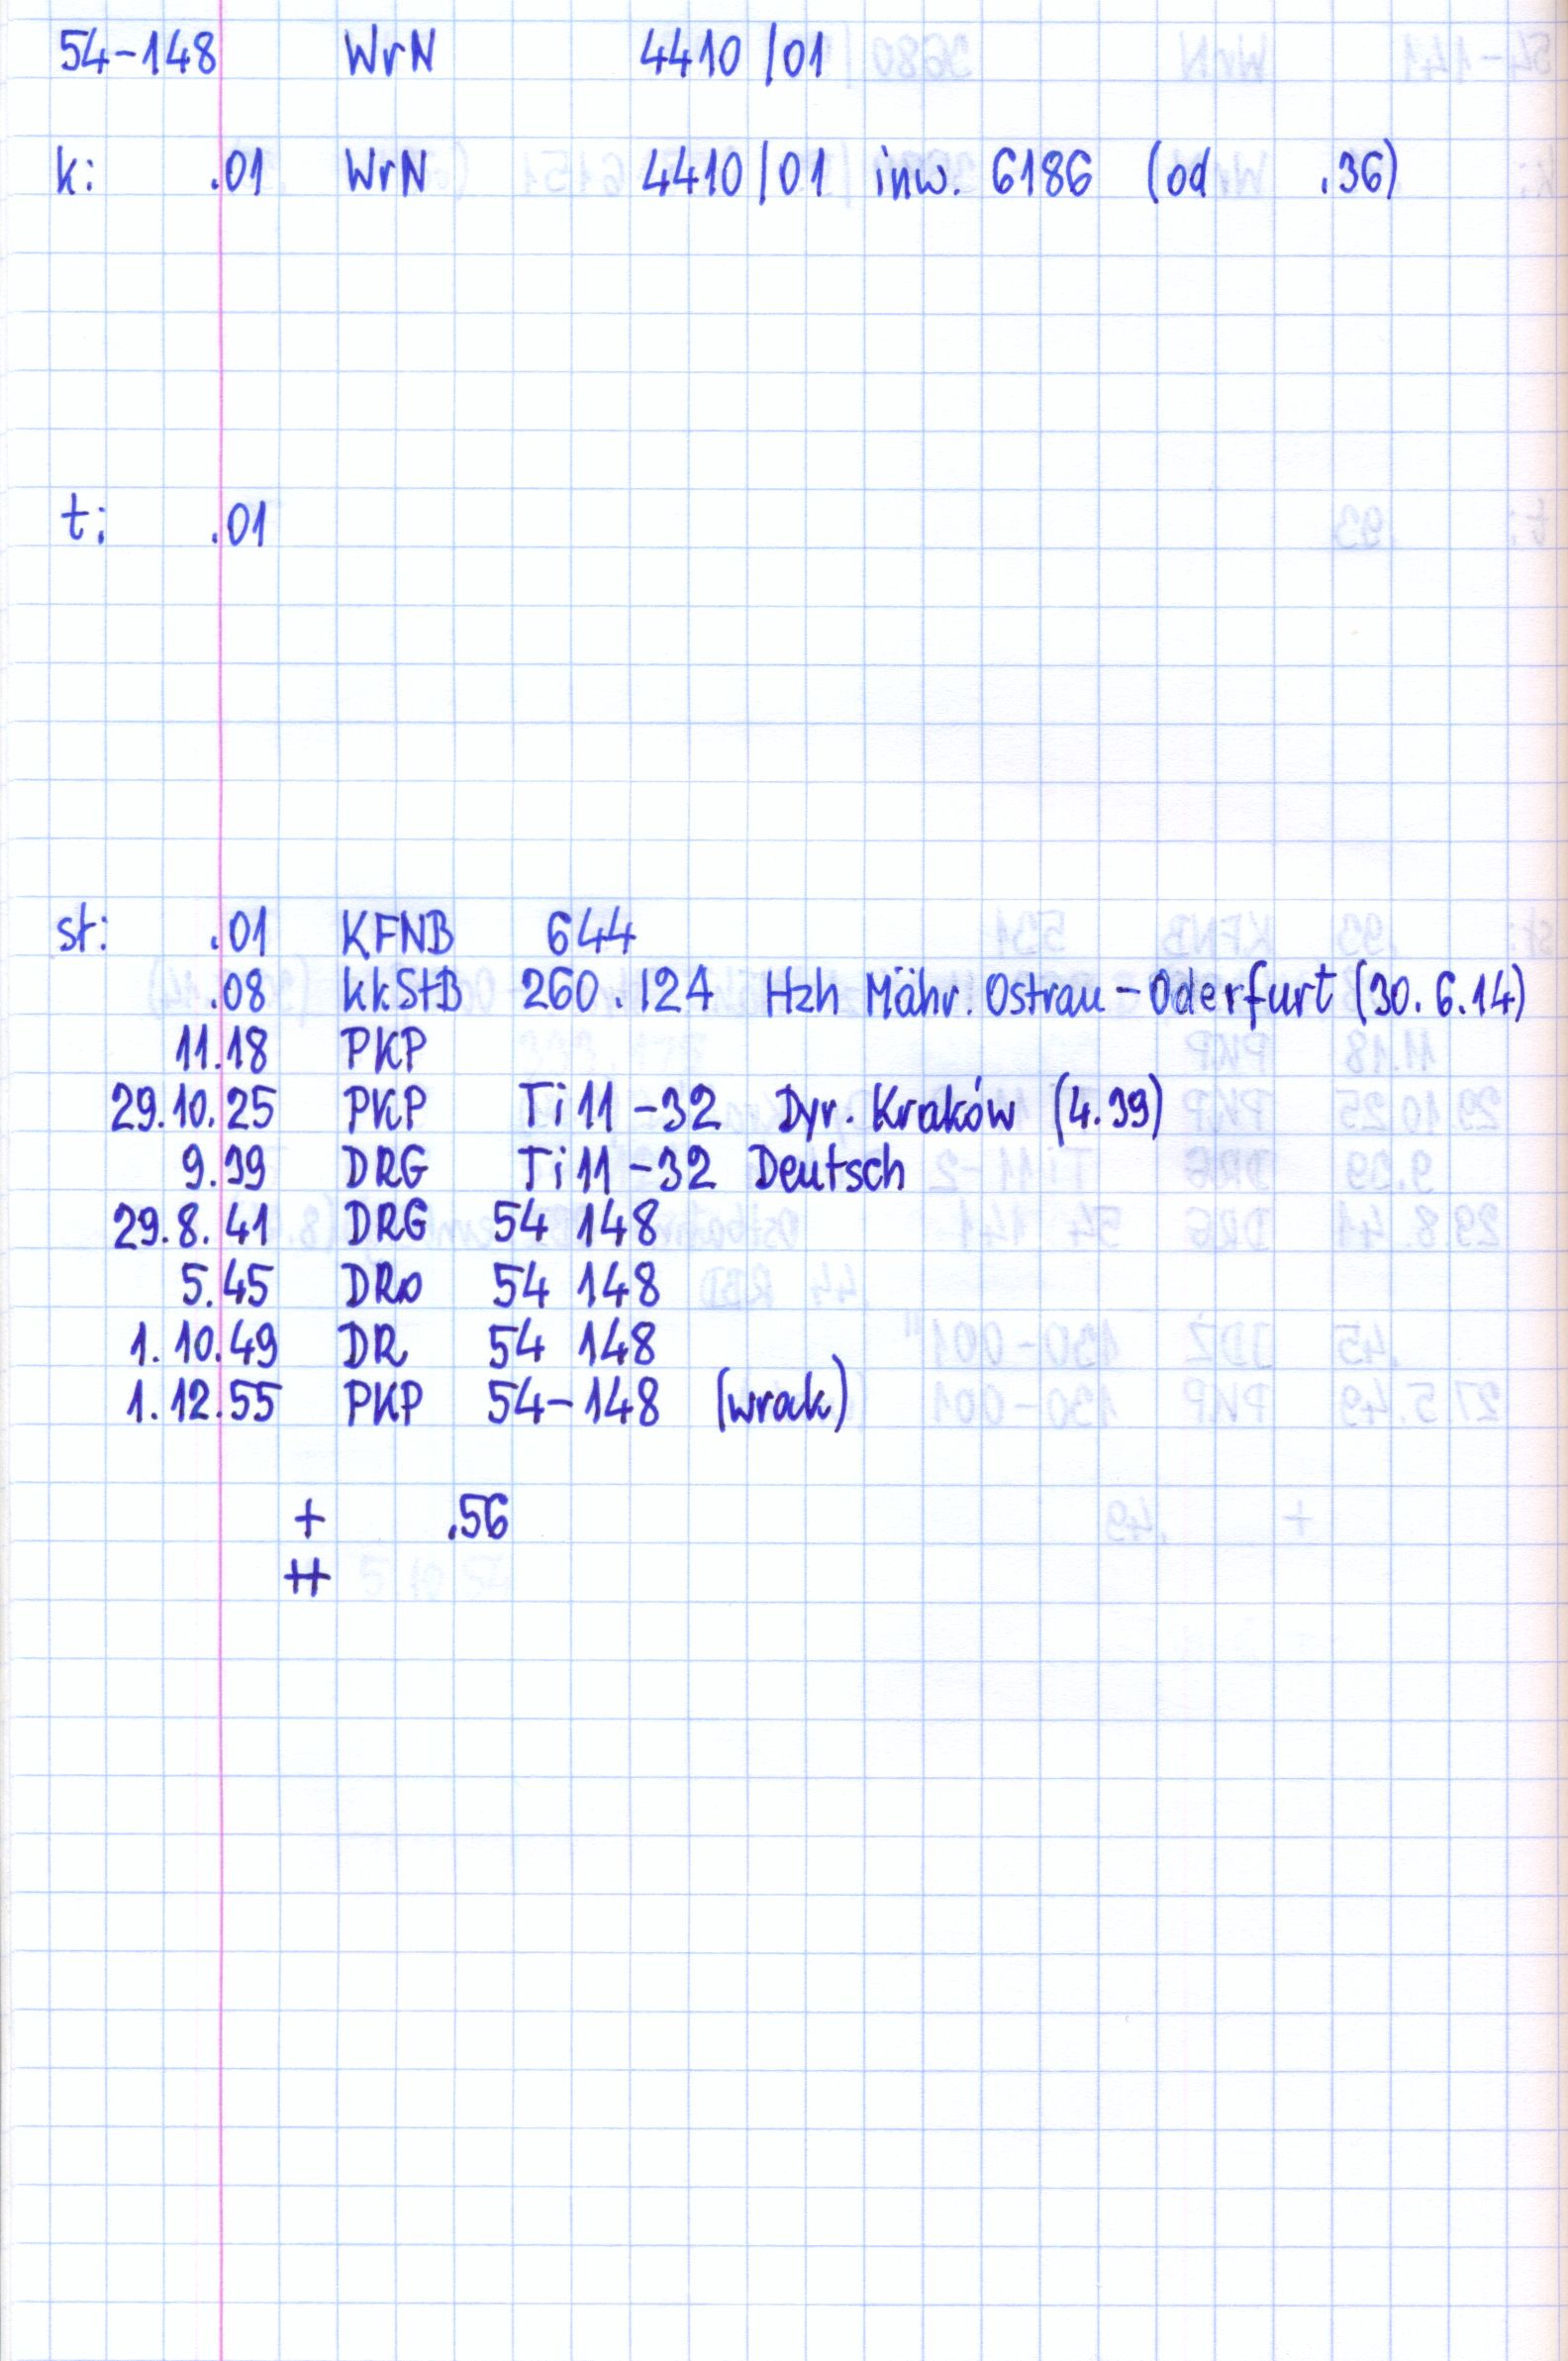 54-148 WrN 4410/01
k: .01 WrN 4410/01 inw. 6186 (od .36)
t: .01
st: .01 KFNB 644
.08 kkStB 260.124 Hzh Mähr. Ostrau-Oderfurt (30.6.14)
11.18 PKP
29.10.25 PKP Ti11-32 Dyr. Kraków (4.39)
9.39 DRG Ti11-32 Deutsch
29.8.41 DRG 54 148
5.45 DRo 54 148
1.10.49 DR 54 148
1.12.55 PKP 54-148 (wrak)
+ .56
++